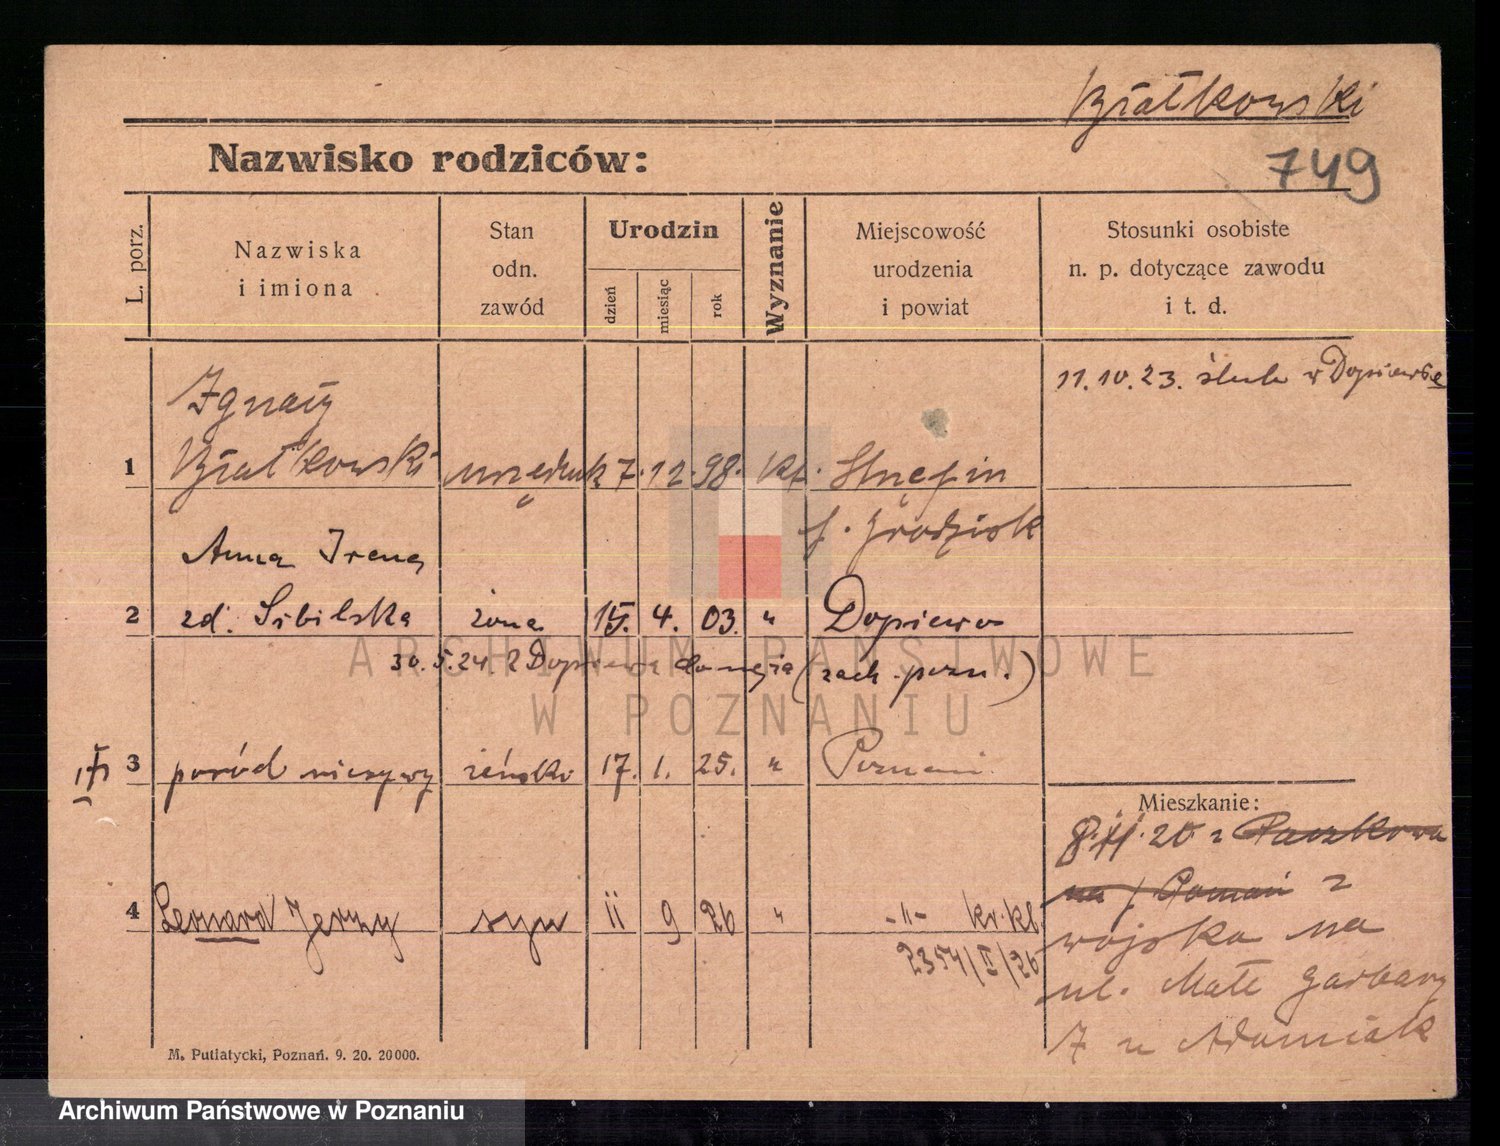 Białkowski
Nazwisko rodziców:
749
L. porz.
Nazwiska
i imiona
Stan
odn.
zawód
Urodzin
dzień
miesiąc
rok
Wyznanie
Miejscowość
urodzenia
i powiat
Stosunki osobiste
n. p. dotyczące zawodu
i t. d.
11.10.23. ślub w Dopiewie
Ignacy
1 Białkowski urzędnik 7. 12. 98. kt. Strzępin
p. Grodzisk
Anna Irena
2 zd. Sibilska żona 15. 4. 03. " Dopiewo
30.5.24. z Dopiewa do męża (zach. pozn.)
3 poród nieżywy żeńsko 17. 1. 25. " Poznań
Mieszkanie:
20 z Paczkowa
4 Leonard Jerzy syn 11 9 26 " -"- kr. kl.
2354/II/26
na / Poznań z
wojska na
ul. Małe Garbary
7 u Adamiak
M. Putiatycki, Poznań. 9. 20. 20000.
ARCHIWUM PAŃSTWOWE
W POZNANIU
Archiwum Państwowe w Poznaniu